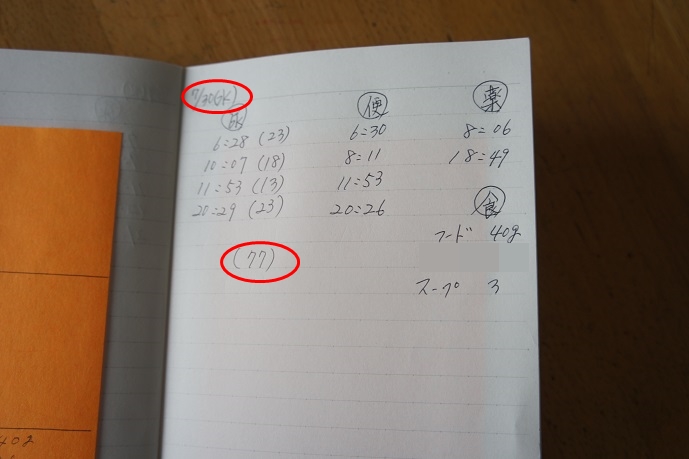 7/30(水)
尿
6:28 (23)
10:07 (18)
11:53 (13)
20:29 (23)
(77)
便
6:30
8:11
11:53
20:26
薬
8:06
18:49
食
フード 40g
スープ 3
40g